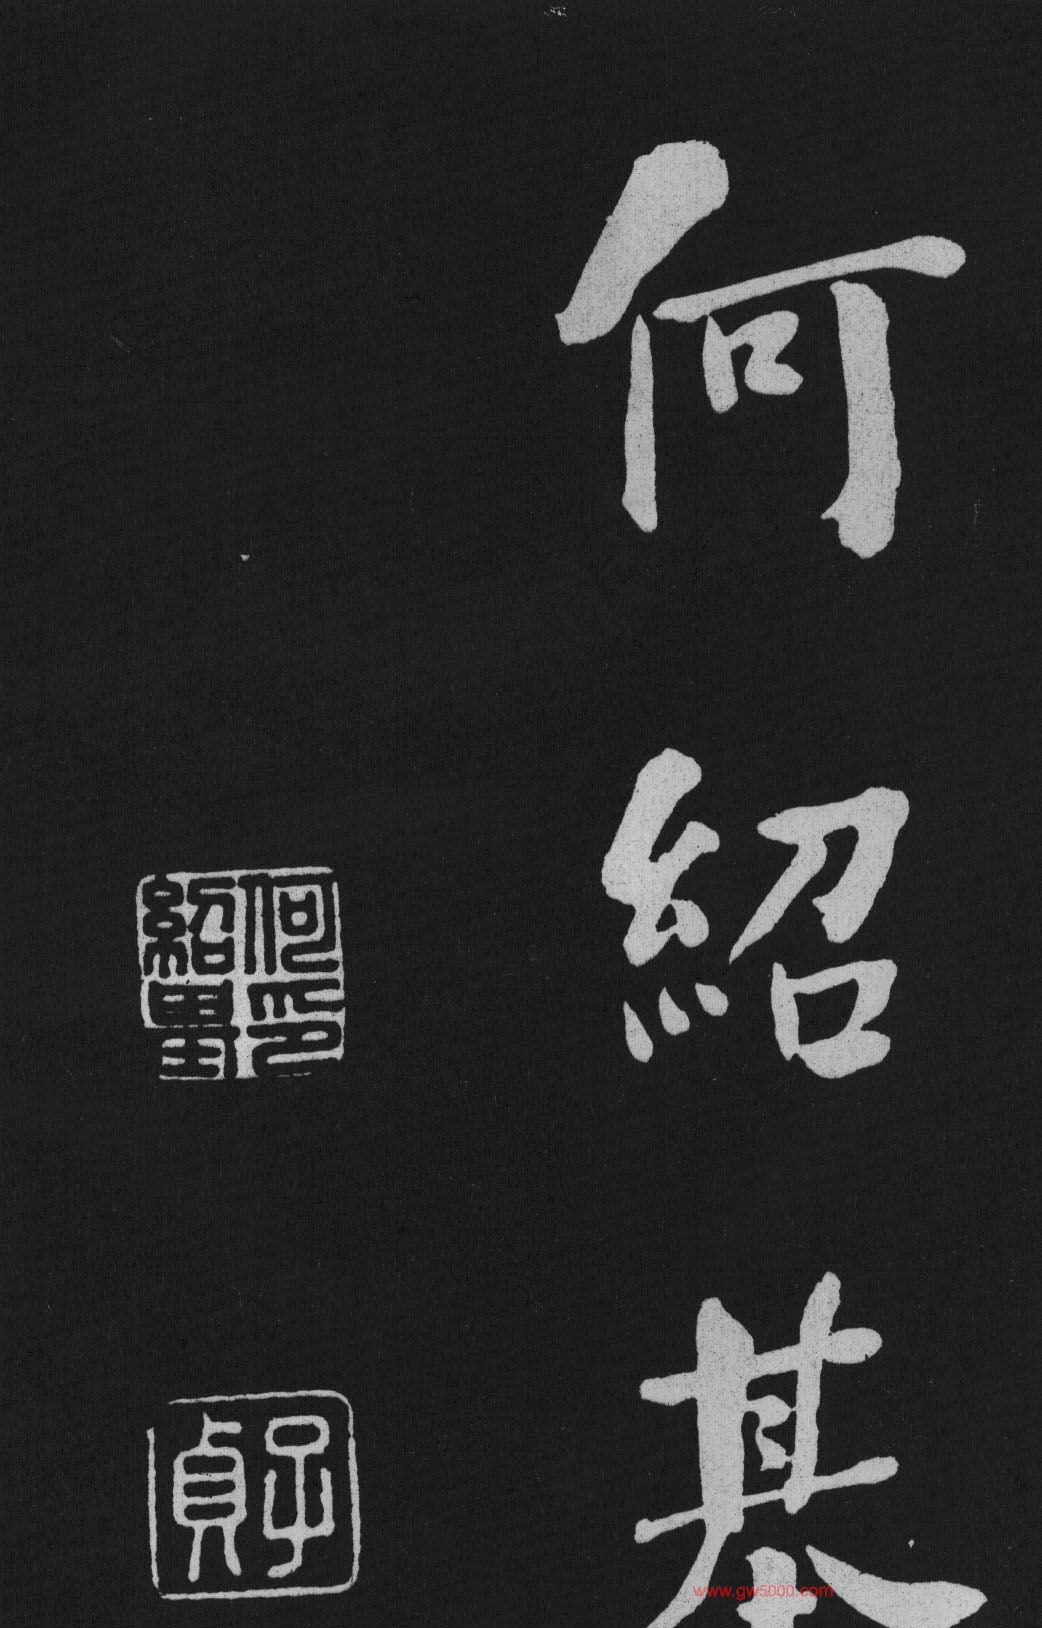 何紹基
何紹基印
子貞
www.gw5000.com